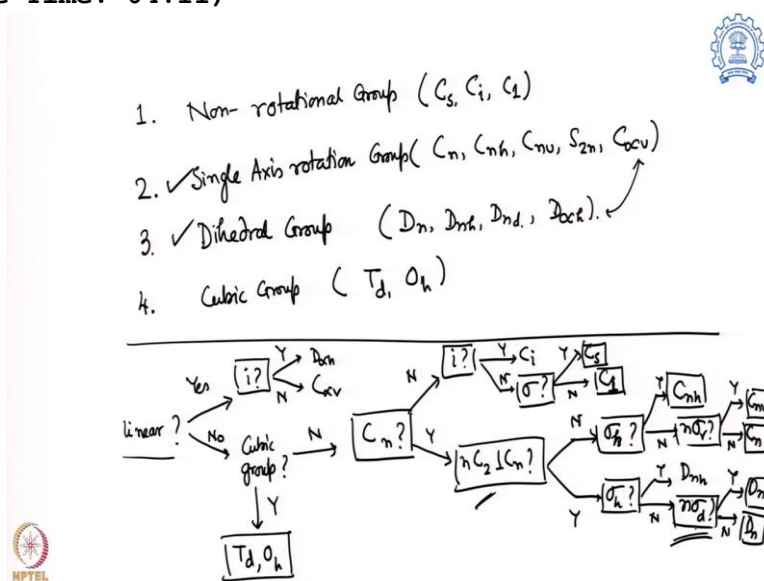 1. Non-rotational Group (Cs, Ci, C1)
2. ✓Single Axis rotation Group( Cn, Cnh, Cnv, S2n, C∞v)
3. ✓Dihedral Group (Dn, Dnh, Dnd, D∞h).
4. Cubic Group ( Td, Oh)
linear?
Yes
i?
Y
D∞h
N
C∞v
No
Cubic group?
Y
Td, Oh
N
Cn?
N
i?
Y
Ci
N
σ?
Y
Cs
N
C1
Y
nC2⊥Cn?
N
σh?
Y
Cnh
N
nσv?
Y
N
Cn
Y
σh?
Y
Dnh
N
nσd?
Y
N
Dn
NPTEL